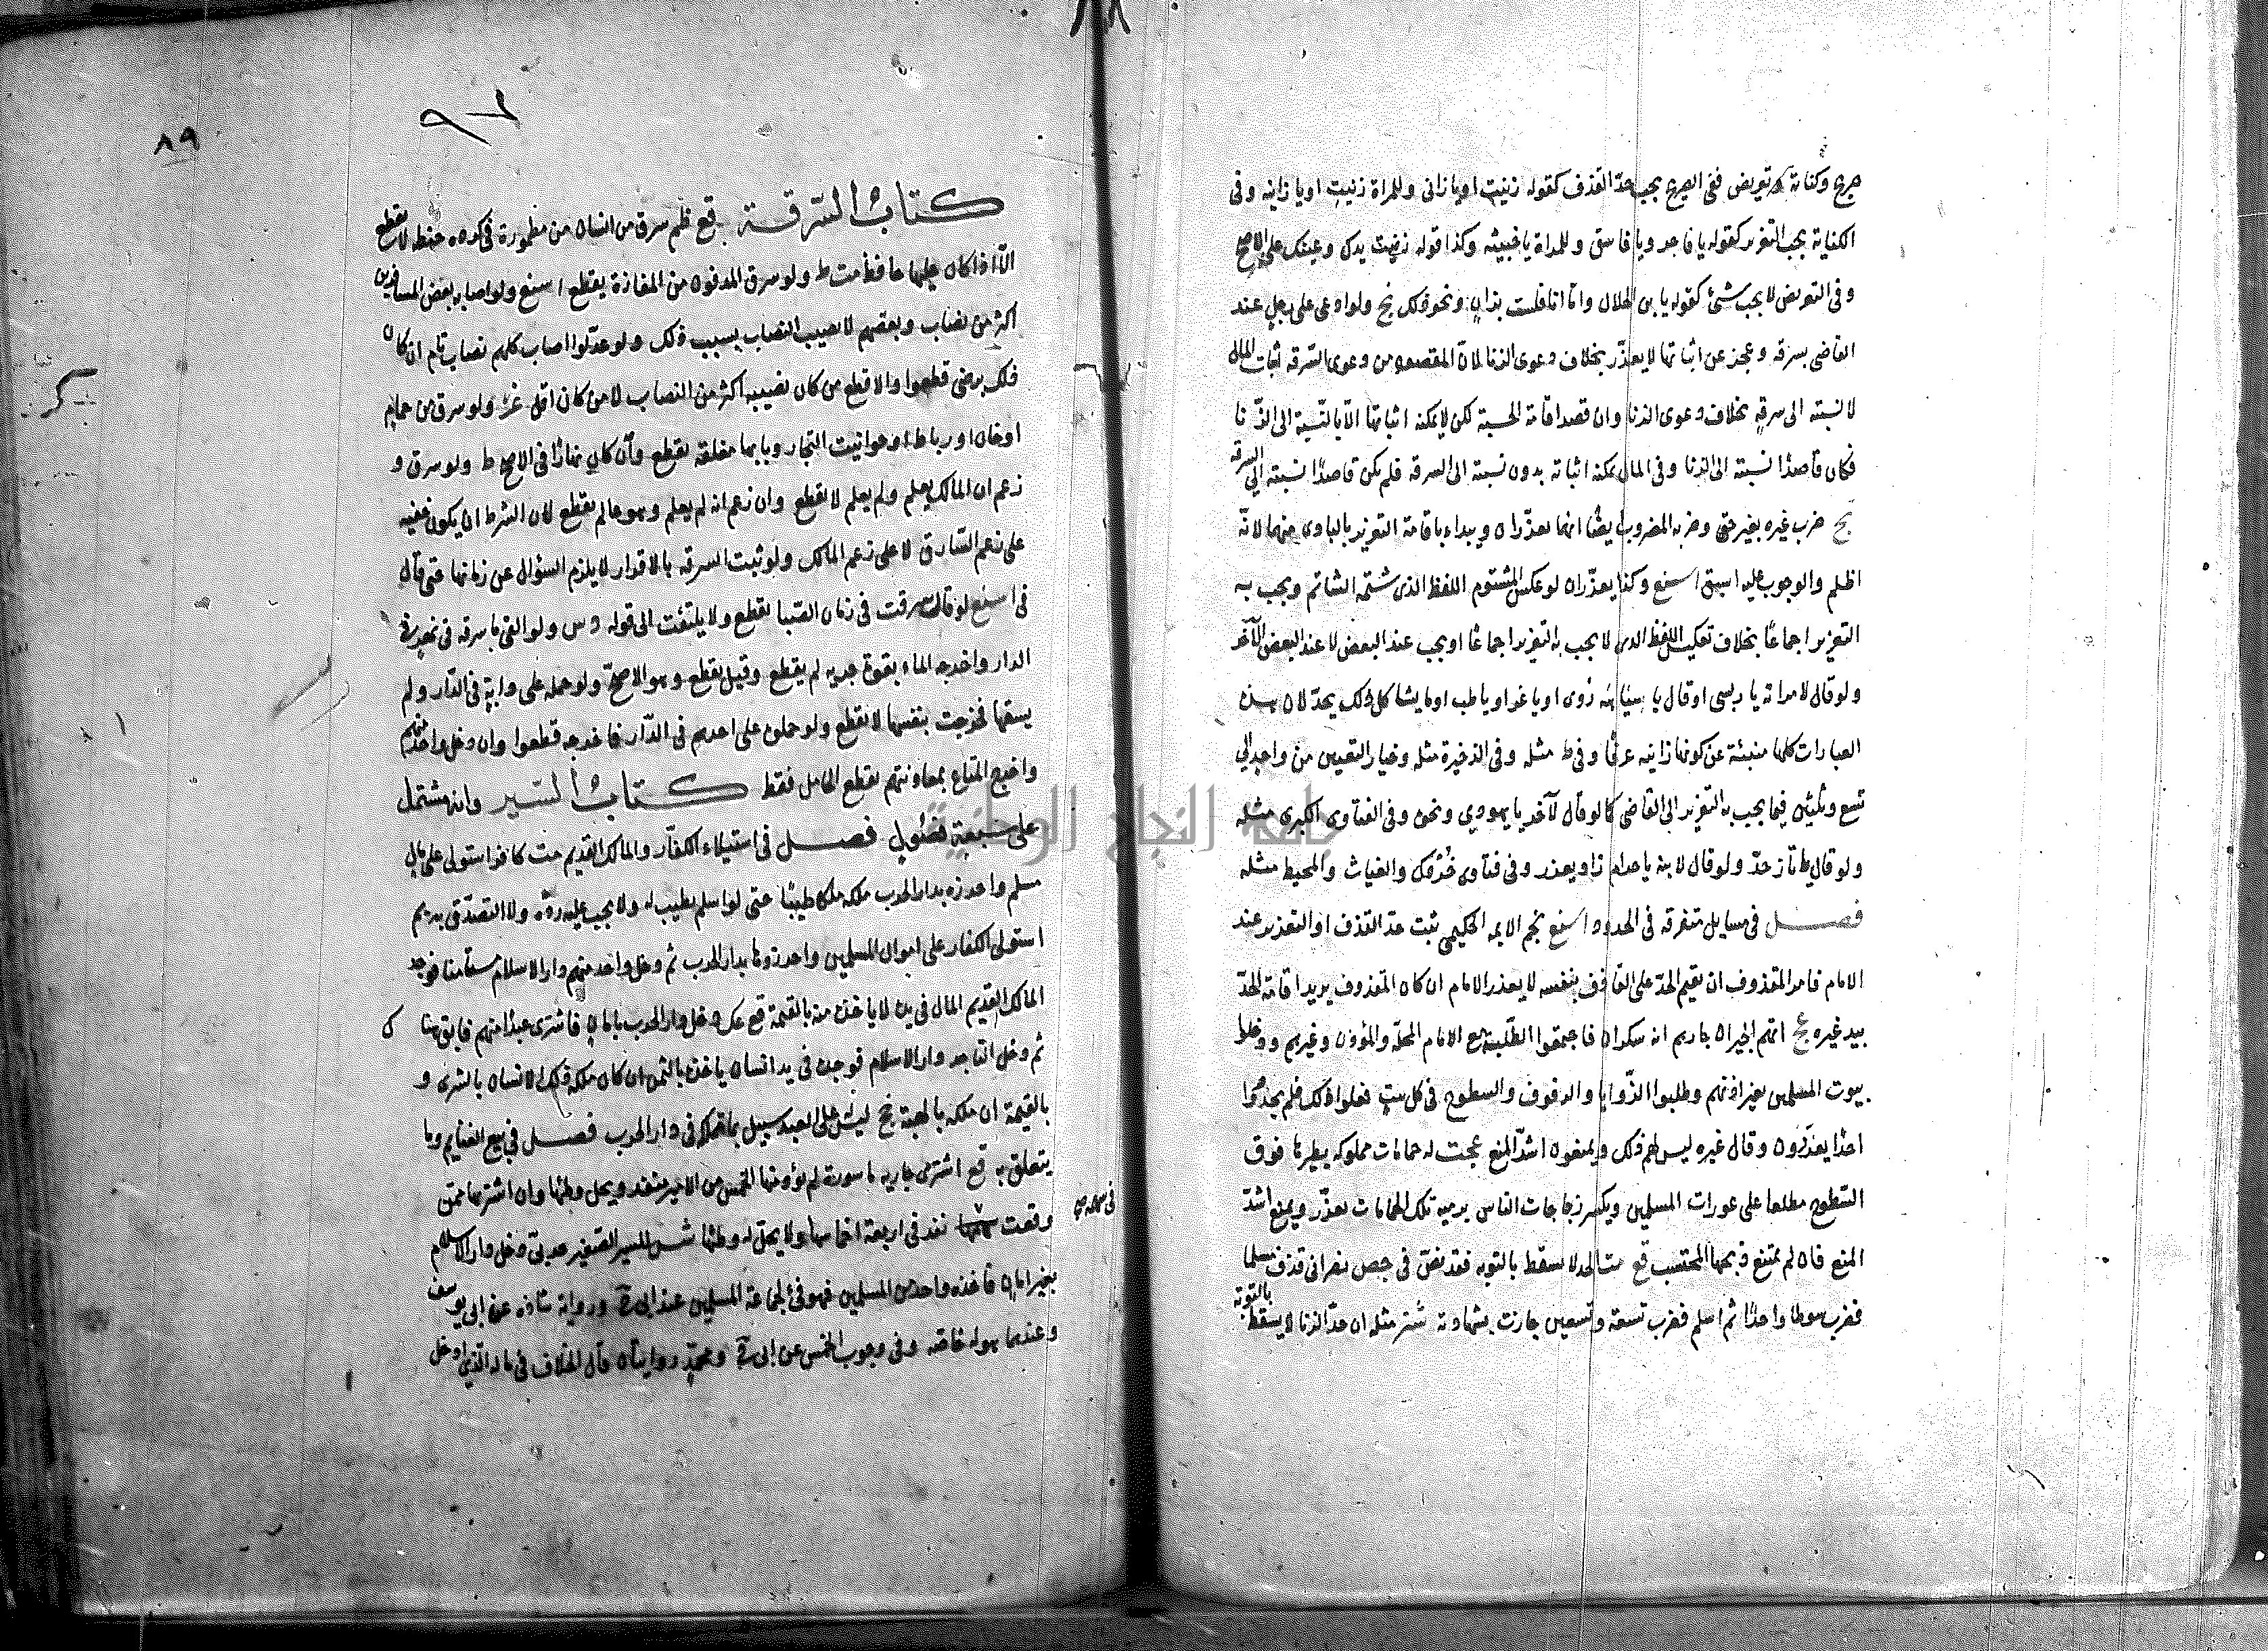 صريح وكناية وتعريض ففى الصريح يجب حدّ القذف كقوله زنيت او يا زانى وللمراة زنيت او يا زانيه وفى
الكناية يجب التعزير كقوله يا فاجر ويا فاسق وللمراة يا خبيثه وكذا قوله زنيت يدك وعينك على الاصح
وفى التعريض لا يجب شئ كقوله يا بن الحلال وامّا انا فلست بزان ونحو ذلك نج ولو ادعى على رجل عند
القاضى بسرقه وعجز عن اثباتها لا يعذّر بخلاف دعوى الزنا لانّ المقصود من دعوى السّرقه اثبات المال
لا نسبته الى سرقه بخلاف دعوى الزنا وان قصد اقامة الحسبة لكن لا يمكنه اثباتها الّا بالنّسبة الى الزّنا
فكان قاصدًا نسبته الى الزنا وفى المال يمكنه اثباته بدون نسبته الى السرقه فلم يكن قاصدًا نسبته الى السرقه
نج ضرب غيره بغير حق وضربه المضروب ايضًا انهما يعذّران ويبداء باقامة التعزير بالبادى منهما لانّه
اظلم والوجوب عليه اسبق اسنع وكذا يعذّران لو عكس المشتوم اللفظ الذى شتمه الشاتم ويجب به
التعزير اجماعًا بخلاف تعكيس اللفظ الذى لا يجب به التعزير اجماعًا او يجب عند البعض لا عند البعض الآخر
ولو قال لامراته يا ربسى او قال يا روى او يا غر او يا كل ذلك يحدّ لان هذه
العبارات كلها منبئة عن كونها زانيه عرفًا وفى ط مثله وفى الذخيرة مثله وخيار التعيين من واحد الى
تسع وثلثين فيما يجب به التعزير الى القاضى كما لو قال لآخر يا يهودي ونحوه وفى الفتاوى الكبرى مثله
ولو قال حدّ ولو قال لابنه يا حرام زاد يعذر وفى فتاوى والغياث والمحيط مثله
فصل فى مسايل متفرقه فى الحدود اسنع نجم الايمه الحكيمى ثبت حدّ القذف او التعزير عند
الامام فامر المقذوف ان يقيم الحدّ على القاذف بنفسه لا يعذر الامام ان كان المقذوف يريد اقامة الحدّ
بيد غيره عج اتهم الجيران جارهم انه سكران فاجتمعوا الطّلبة مع الامام المحلّه والمؤذن وغيرهم ودخلوا
بيوت المسلمين بغير اذنهم وطلبوا الزّوايا والرفوف والسطوح فى كل بيت فعلوا ذلك فلم يجدوا
احدًا يعذّرون وقال غيره ليس لهم ذلك ويمنعون اشدّ المنع عجت له حمامات مملوكه يطيرها فوق
السّطوح مطلعا على عورات المسلمين ويكسر زجاجات الناس برميه تلك الحمامات يعذّر ويمنع اشدّ
المنع فان لم يمتنع ذبحها المحتسب قع مت الحد لا يسقط بالتوبه فقد نصّ فى جص نصرانى قذف مسلما
فضرب سوطا واحدًا ثم اسلم فضرب تسعة وتسعين جازت شهادته شتر مثله ان حدّ الزنا لا يسقط بالتوبة
٨٩
كتاب السّرقة قع ظم سرق من انسان من مطمورة حنطه لا يقطع
الّا اذا كان عليها حافظ مت ط ولو سرق المدفون من المفازة يقطع اسنع ولو اصاب بعض المسافرين
اكثر من نصاب وبعضهم لا يصيب النصاب بسبب ذلك ولو عدّلوا اصاب كلهم نصاب تام ان كان
ذلك برضى قطعوا والا قطع من كان نصيبه اكثر من النصاب لا من كان اقل ولو سرق من حمام
او خان او رباط او حوانيت التجار وبابها مغلقه يقطع وان كان نهارًا فى الاصح ط ولو سرق و
زعم ان المالك يعلم ولم يعلم لا يقطع وان زعم انه لم يعلم وهو عالم يقطع لان الشرط ان يكون خفيه
على زعم السّارق لا على زعم المالك ولو ثبت السرقه بالاقرار لا يلزم السؤال عن زمانها حتى قال
فى اسنع لو قال سرقت فى زمان الصّبا يقطع ولا يلتفت الى قوله ولو القى ما سرقه فى نهر فى
الدار واخرجه الماء بقوة جريه لم يقطع وقيل يقطع وهو الاصحّ ولو حمله على دابة فى الدّار ولم
يسقها فخرجت بنفسها لا يقطع ولو حملوه على احدهم فى الدّار فاخرجه قطعوا وان دخل واحد منهم
واخرج المتاع بمعاونتهم يقطع الحامل فقط كتاب السّير وانه مشتمل
على سبعة فصول فصل فى استيلاء الكفّار والمالك القديم مت كافر استولى على مال
مسلم واحرزه بدار الحرب ملكه ملكا طيبًا حتى لو اسلم يطيب له ولا يجب عليه ردّه ولا التصدّق به
استولى الكفار على اموال المسلمين واحرزوها بدار الحرب ثم دخل واحد منهم دار الاسلام مستأمنا فوجد
المالك القديم المال فى يده لا ياخذه منه بالقيمة قع عك دخل دار الحرب بامان فاشترى عبدًا منهم فابق
ثم دخل التاجر دار الاسلام فوجده فى يد انسان ياخذه بالثمن ان كان ملكه ذلك الانسان بالشرى و
بالقيمة ان ملكه بالهبة نج ليس على العبد سبيل فى دار الحرب فصل فى بيع الغنايم وما
يتعلق به قع اشترى جاريه ماسورة لم يؤد منها الخمس من الامير ينفذ ويحل وطئها وان اشتريها ممن
وقعت فى سهمه نفذ فى اربعة اخماسها ولا يحل له وطئها السير الصغير حربىّ دخل دار الاسلام
بغير امان فاخذه واحد من المسلمين فهو فئ لجماعة المسلمين عند ابى ح ورواية شاذه عن ابى يوسف
وعندهما هو له خاصه وفى وجوب الخمس عن ابى ح ومحمّد روايتان